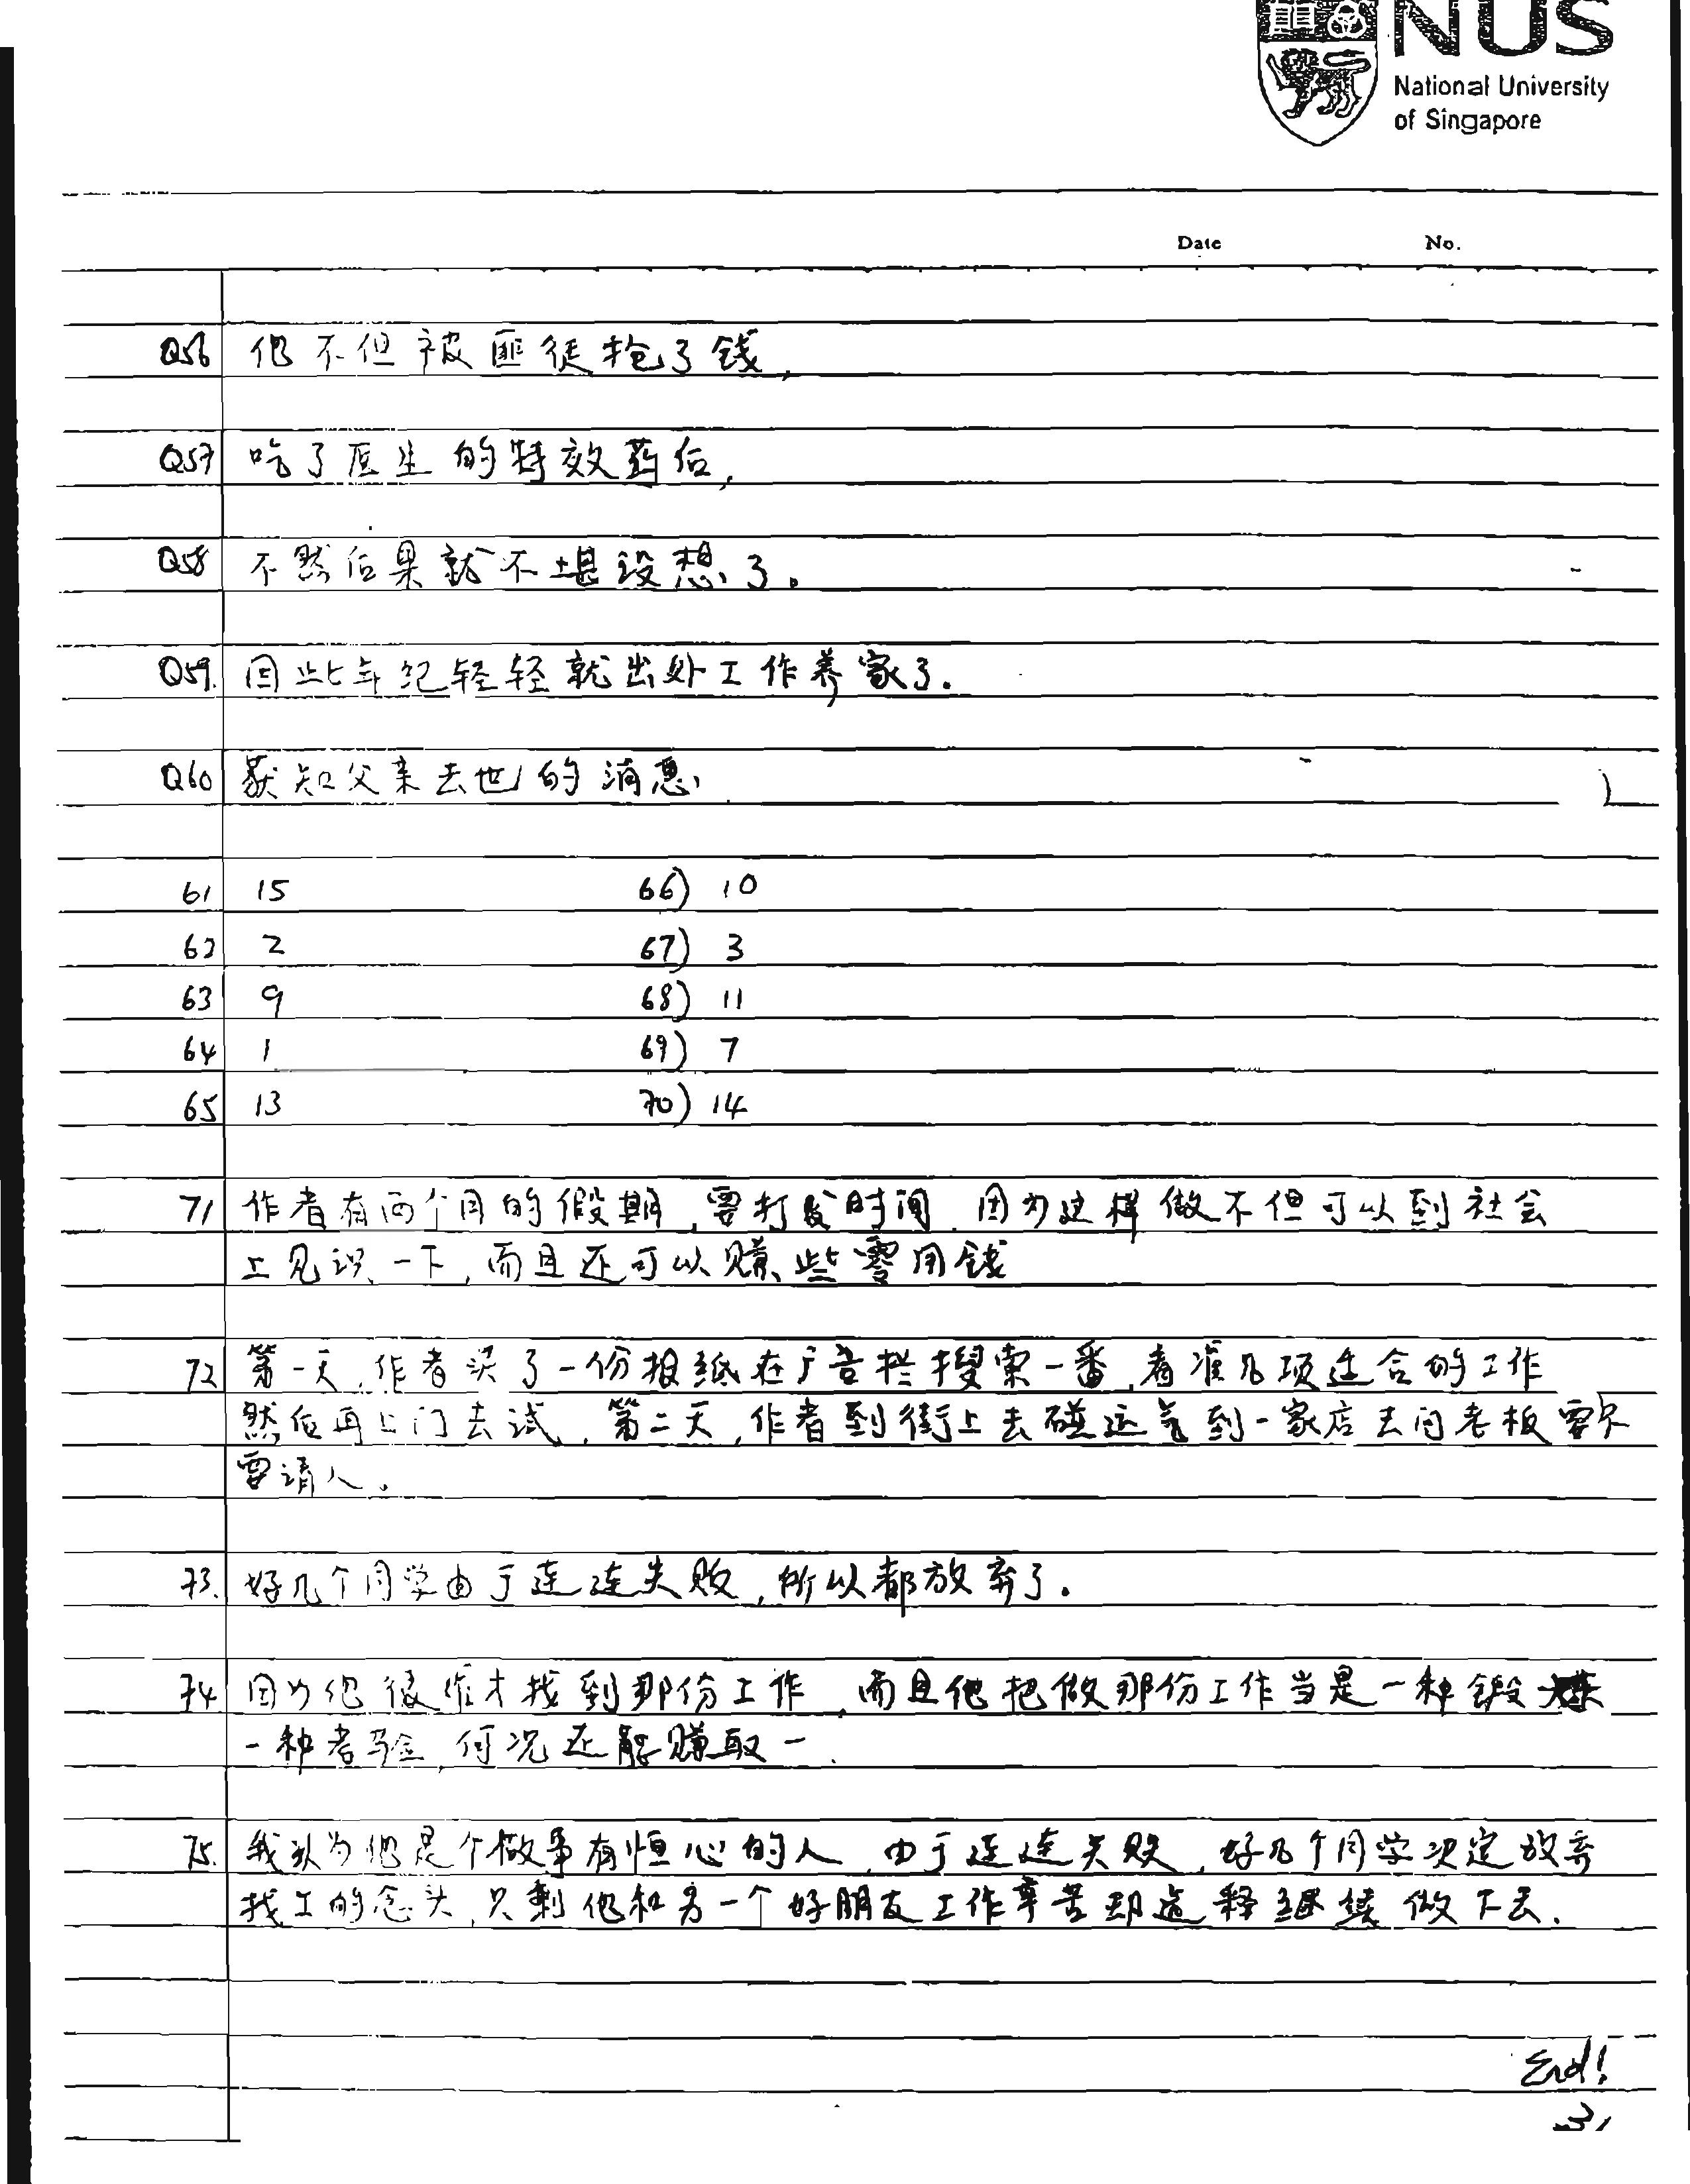 NUS
National University
of Singapore
Date No.
Q56 他不但被匪徒抢了钱,
Q57 吃了医生的特效药后,
Q58 不然后果就不堪设想了。
Q59. 因此年纪轻轻就出外工作养家了.
Q60 获知父亲去世的消息,
61 15 66) 10
62 2 67) 3
63 9 68) 11
64 1 69) 7
65 13 70) 14
71 作者有两个月的假期,要打发时间.因为这样做不但可以到社会
上见识一下,而且还可以赚些零用钱
72 第一天,作者买了一份报纸在广告栏搜索一番,看准几项适合的工作
然后再上门去试,第二天,作者到街上去碰运气到一家店去问老板要不
要请人。
73. 好几个同学由于连连失败,所以都放弃了.
74. 因为他很难才找到那份工作,而且他把做那份工作当是一种锻炼
一种考验,何况还能赚取一.
75. 我认为他是个做事有恒心的人,由于连连失败,好几个同学决定放弃
找工的念头,只剩他和另一个好朋友工作辛苦却选择继续做下去.
End!
3,